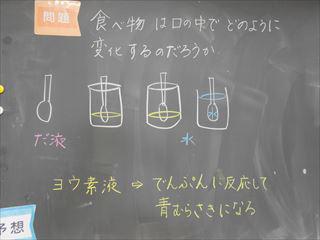 問題
食べ物は口の中でどのように
変化するのだろうか
だ液
水
水
ヨウ素液 ⇒ でんぷんに反応して
青むらさきになる
予想